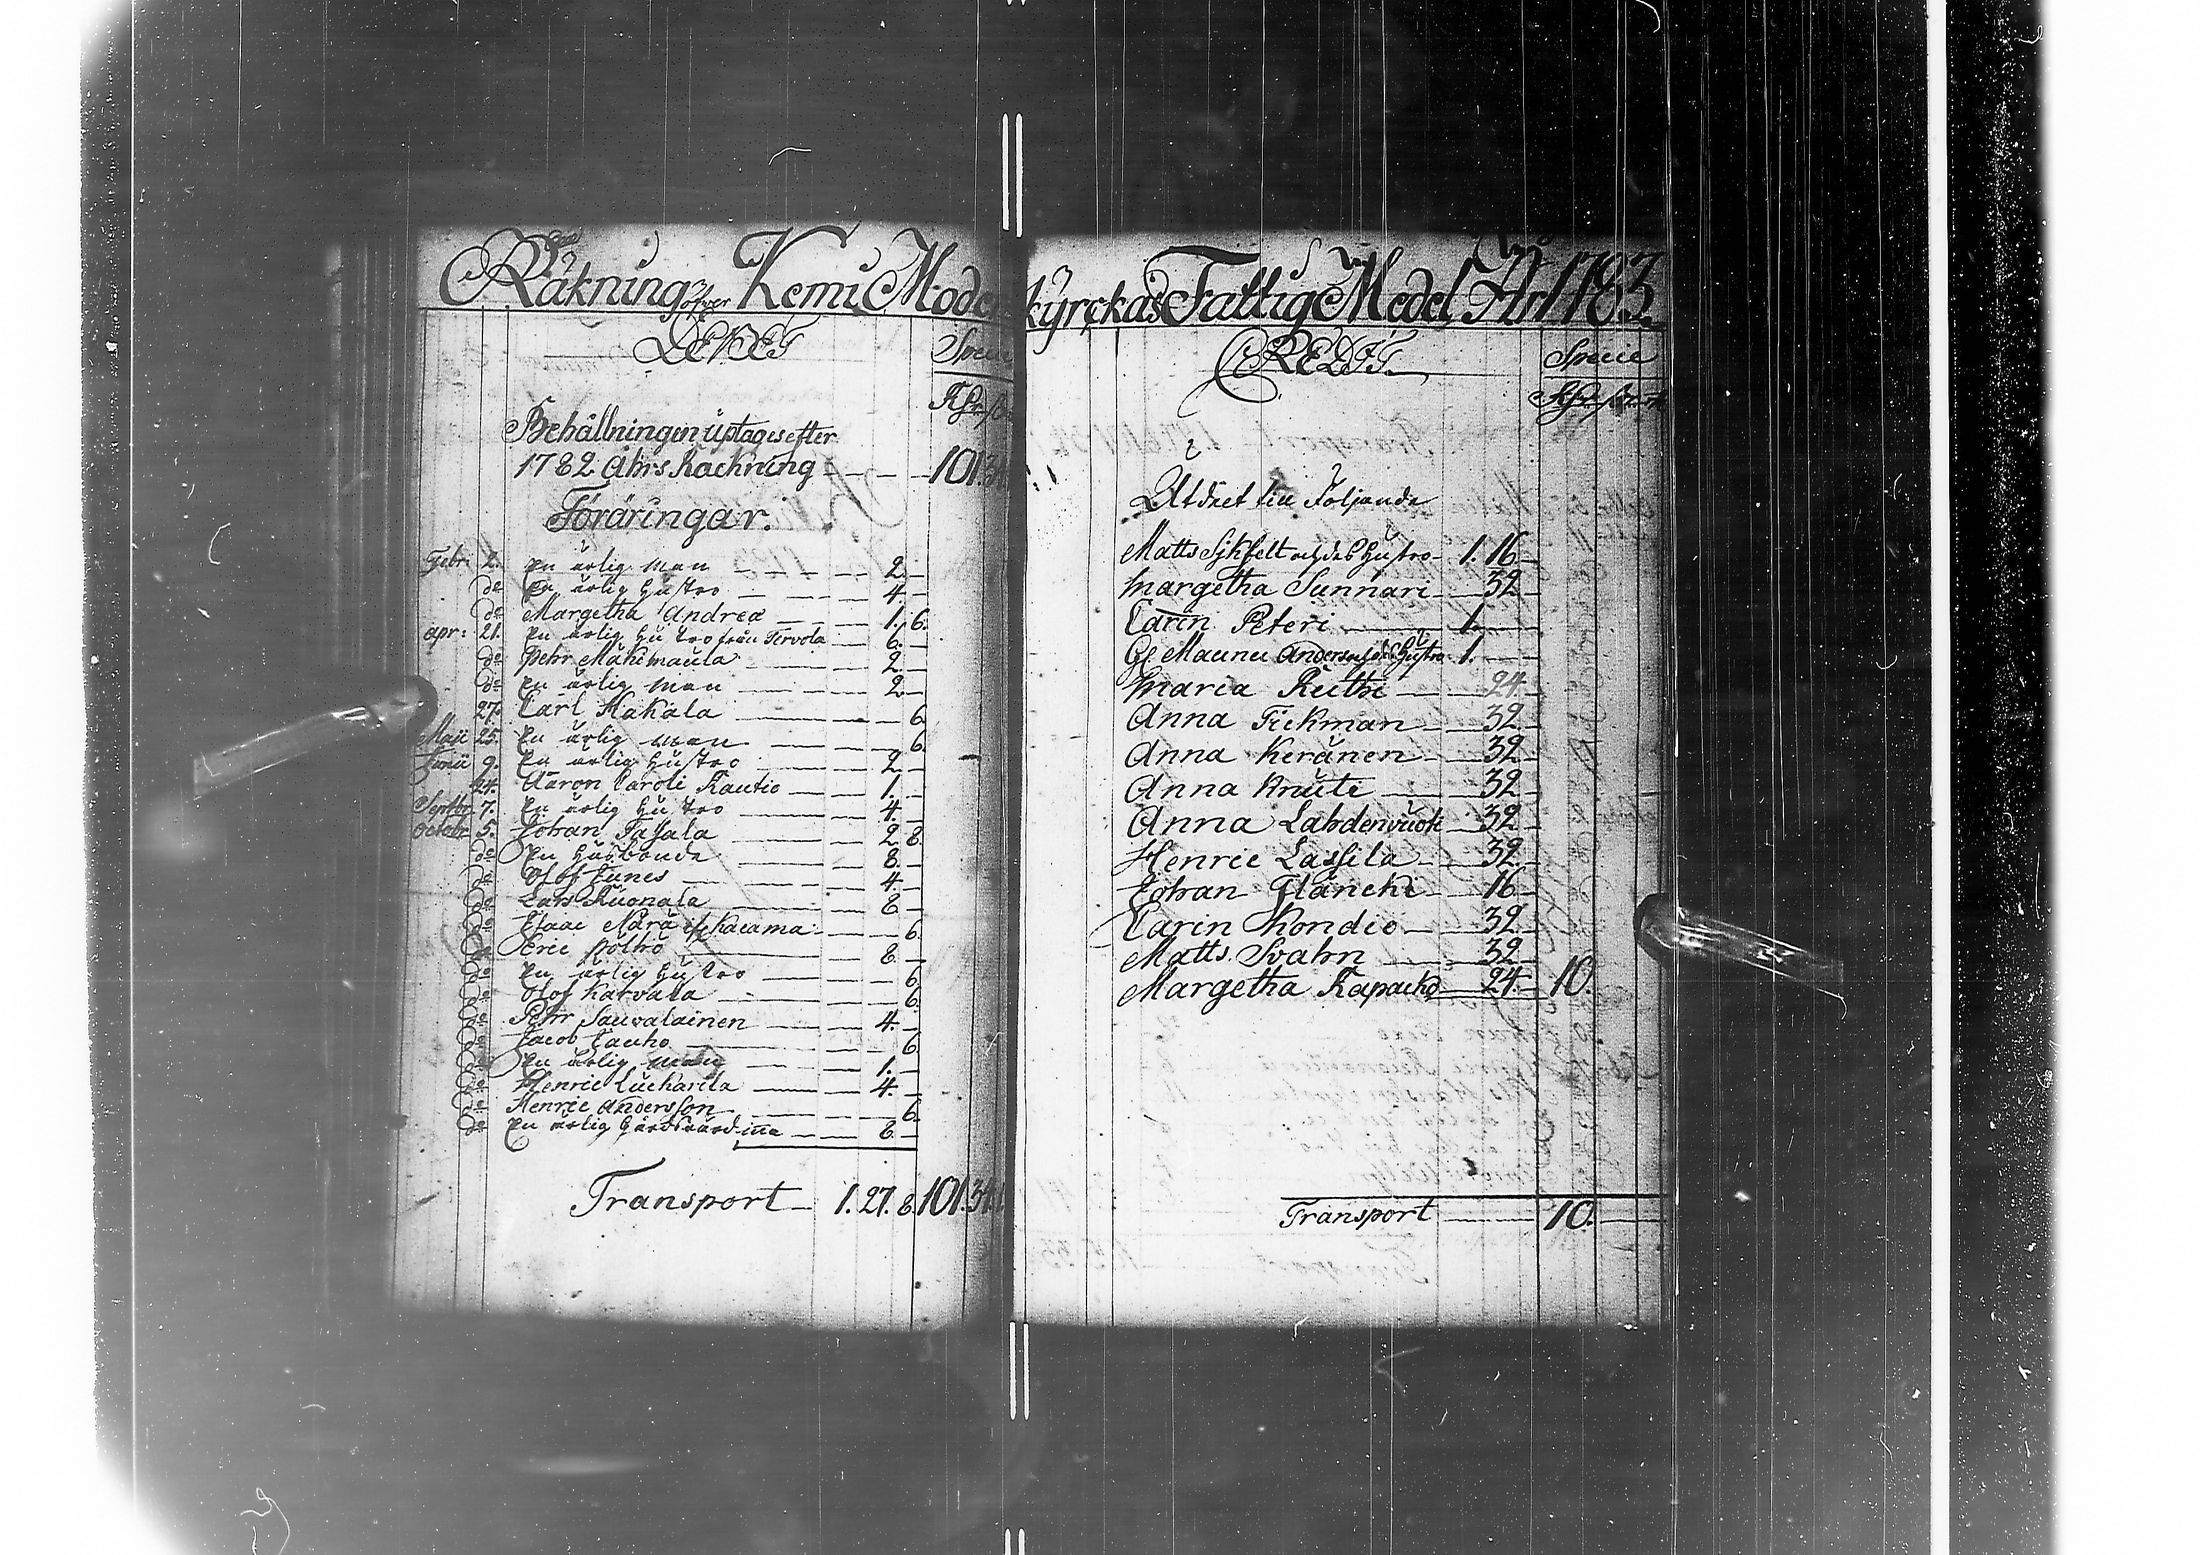 Räkning öfver Kemi Moder
DEBET
Specie
Behållningen uptages efter
1782 Åhrs Räckning — — 101.34
Föräringar.
Febr: 2. En ärlig man — — 2. —
do En ärlig Hustro — — 4. —
do Margetha Andrea — — 1. 6.
apr: 21. En ärlig Hustro från Tervola — 6. —
do Pehr Mäkimaula — — 2. —
do En ärlig man — — 2 —
27. Carl Hakala — — 6.
Maii 25. En ärlig man — — 6.
Junii 9. En ärlig Hustro — — 2. —
24. Aaron Caroli Rautio — — 1. —
Septbr 7. En ärlig Hustro — — 4. —
Octobr 5. Johan Tassala — — 2. 8.
do En Husbonde — — 8. —
do Olof Junes — — 4. —
do Lars Ruonala — — 8. —
do Isaac Närä — 6.
do Eric Pölhö — — 8. —
do En ärlig Hustro — — 6.
do Olof Karvala — — 6.
do Pehr Sauvalainen — — 4. —
do Jacob Cauho — — 6.
do En ärlig man — — 1. —
do Henric Lucharila — — 4. —
do Henric Andersson — — 6.
do En ärlig Gårdsvärdinna — — 8. —
Transport — 1. 27. 8. 101.34
kyrckas Fattige Medel För År 1783
CREDIT.
Specie
Utdelt till Följande
Matts Sjkfelt och des Hustro — 1. 16 —
Margetha Sunnari — 32 —
Carin Peteri — 1. —
Gl Maunu Anderss och des Hustro 1. —
Maria Ruthi — 24. —
Anna Fickman — 32 —
Anna Keränen — 32 —
Anna Knuti — 32 —
Anna Lahdenvuoti — 32 —
Henric Lassila — 32 —
Johan Flänchi — 16 —
Carin Kondio — 32 —
Matts Svahn — 32 —
Margetha Kapacho — 24. — 10.
Transport — 10. —